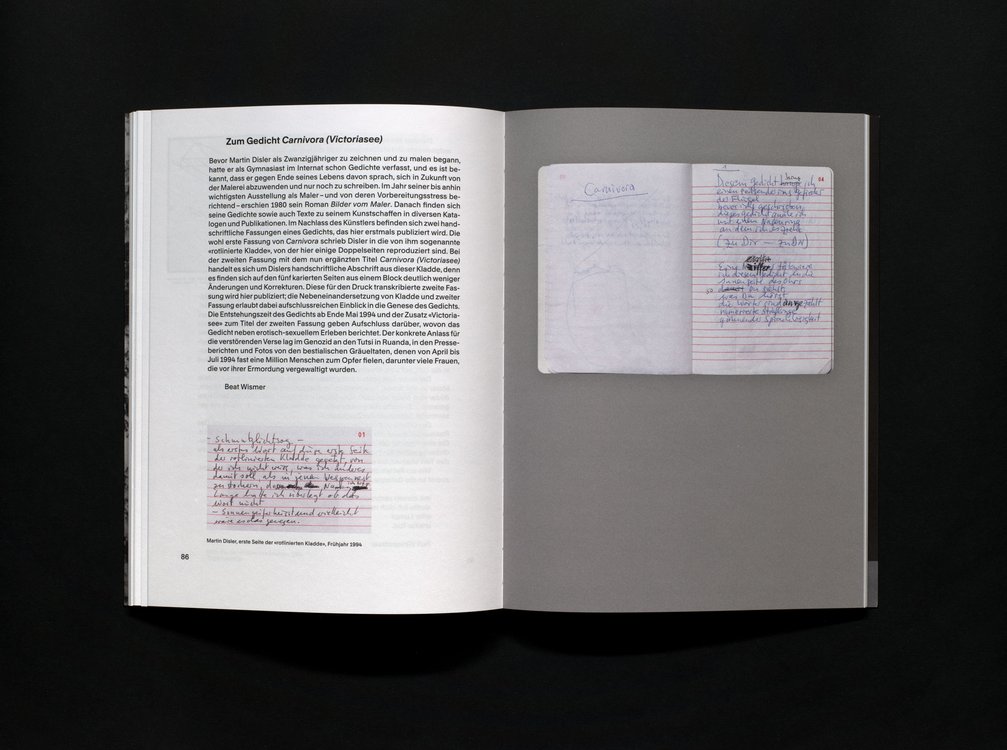 Zum Gedicht Carnivora (Victoriasee)
Bevor Martin Disler als Zwanzigjähriger zu zeichnen und zu malen begann,
hatte er als Gymnasiast im Internat schon Gedichte verfasst, und es ist be-
kannt, dass er gegen Ende seines Lebens davon sprach, sich in Zukunft von
der Malerei abzuwenden und nur noch zu schreiben. Im Jahr seiner bis anhin
wichtigsten Ausstellung als Maler – und von deren Vorbereitungsstress be-
richtend – erschien 1980 sein Roman Bilder vom Maler. Danach finden sich
seine Gedichte sowie auch Texte zu seinem Kunstschaffen in diversen Kata-
logen und Publikationen. Im Nachlass des Künstlers befinden sich zwei hand-
schriftliche Fassungen eines Gedichts, das hier erstmals publiziert wird. Die
wohl erste Fassung von Carnivora schrieb Disler in die von ihm sogenannte
«rotlinierte Kladde», von der hier einige Doppelseiten reproduziert sind. Bei
der zweiten Fassung mit dem nun ergänzten Titel Carnivora (Victoriasee)
handelt es sich um Dislers handschriftliche Abschrift aus dieser Kladde, denn
es finden sich auf den fünf karierten Seiten aus einem Block deutlich weniger
Änderungen und Korrekturen. Diese für den Druck transkribierte zweite Fas-
sung wird hier publiziert; die Nebeneinandersetzung von Kladde und zweiter
Fassung erlaubt dabei aufschlussreichen Einblick in die Genese des Gedichts.
Die Entstehungszeit des Gedichts ab Ende Mai 1994 und der Zusatz «Victoria-
see» zum Titel der zweiten Fassung geben Aufschluss darüber, wovon das
Gedicht neben erotisch-sexuellem Erleben berichtet. Der konkrete Anlass für
die verstörenden Verse lag im Genozid an den Tutsi in Ruanda, in den Presse-
berichten und Fotos von den bestialischen Gräueltaten, denen von April bis
Juli 1994 fast eine Million Menschen zum Opfer fielen, darunter viele Frauen,
die vor ihrer Ermordung vergewaltigt wurden.
Beat Wismer
01
als erstes
auf
erste Seite
der rotlinierten Kladde
von
der ich nicht weiss, was ich anderes
damit soll, als in
Lange hatte ich überlegt ob das
Wort nicht
und vielleicht
wäre es das gewesen.
Martin Disler, erste Seite der «rotlinierten Kladde», Frühjahr 1994
86
Carnivora
1
04
Diesem Gedicht
ich
(zu Dir – zu Dir)